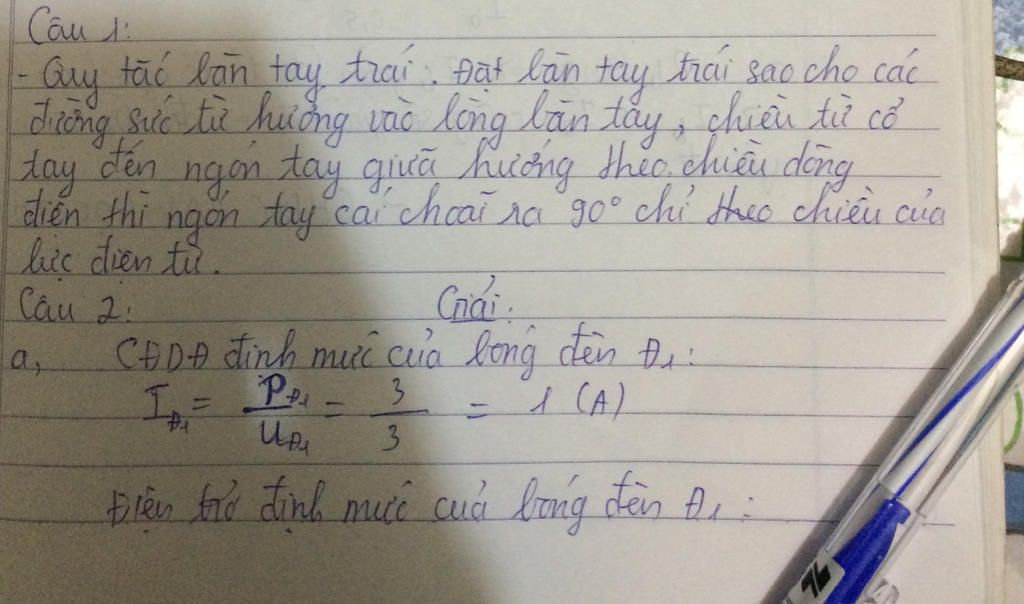 Câu 1:
- Quy tắc bàn tay trái. Đặt bàn tay trái sao cho các
đường sức từ hướng vào lòng bàn tay, chiều từ cổ
tay đến ngón tay giữa hướng theo chiều dòng
điện thì ngón tay cái choãi ra 90° chỉ theo chiều của
lực điện từ.
Câu 2: Giải:
a, CĐDĐ định mức của bóng đèn Đ1:
I Đ1 = P Đ1 / U Đ1 = 3 / 3 = 1 (A)
Điện trở định mức của bóng đèn Đ1: